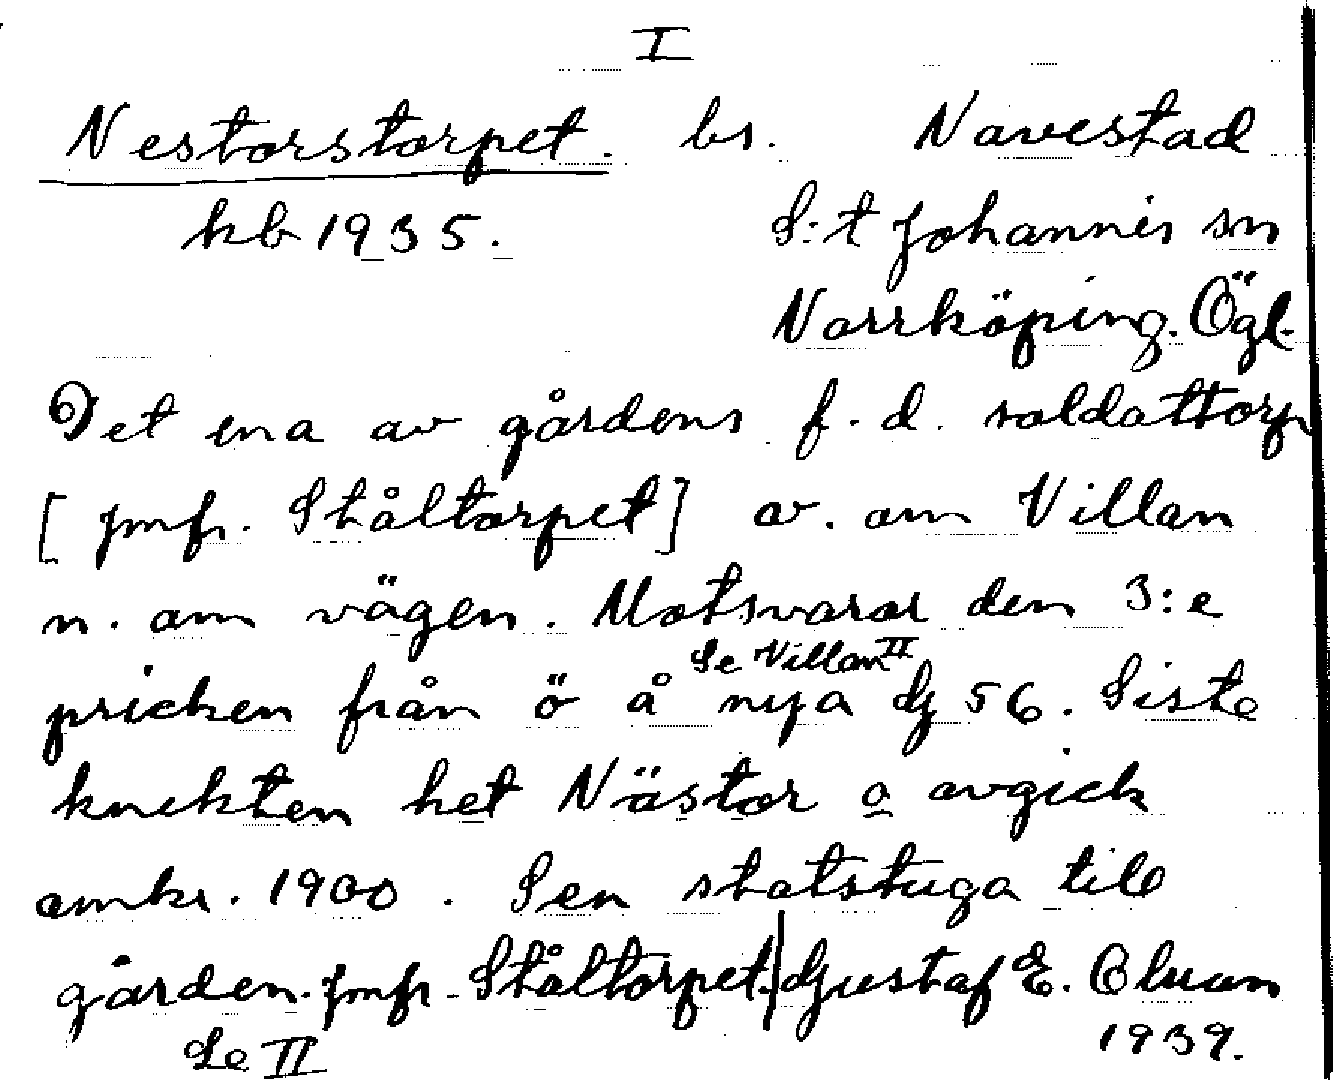 I
Nestorstorpet. bs. Navestad
kb 1935. S:t Johannis sn
Norrköping. Ögl.
Det ena av gårdens f. d. soldattorp
[jmfr. Ståltorpet] v. om Villan
n. om vägen. Motsvarar den 3:e
Se Villan II
pricken från ö å nya dj 56. Siste
knekten het Nästor o avgick
omkr. 1900. Sen statstuga till
gården. jmfr. Ståltorpet. | Gustaf E.
Se II 1939.